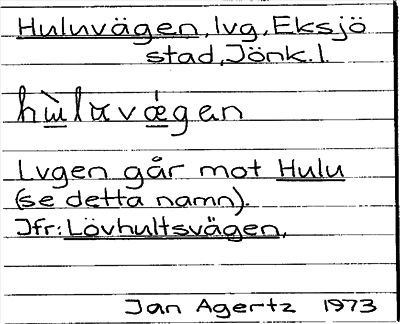 Huluvägen, lvg, Eksjö
stad, Jönk.l.
hɯ̀lɤvǽgan
Lvgen går mot Hulu
(se detta namn).
Jfr: Lövhultsvägen.
Jan Agertz 1973